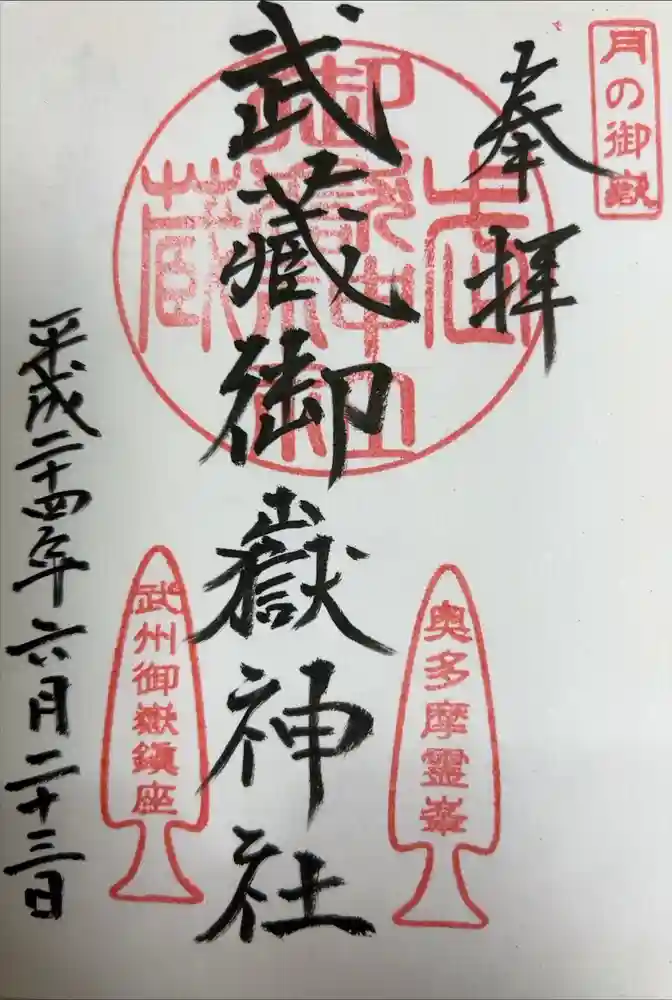 月の御嶽
奉拝
武蔵御嶽神社
武蔵
御嶽神社
奥多摩霊峯
武州御嶽鎮座
平成二十四年六月二十三日